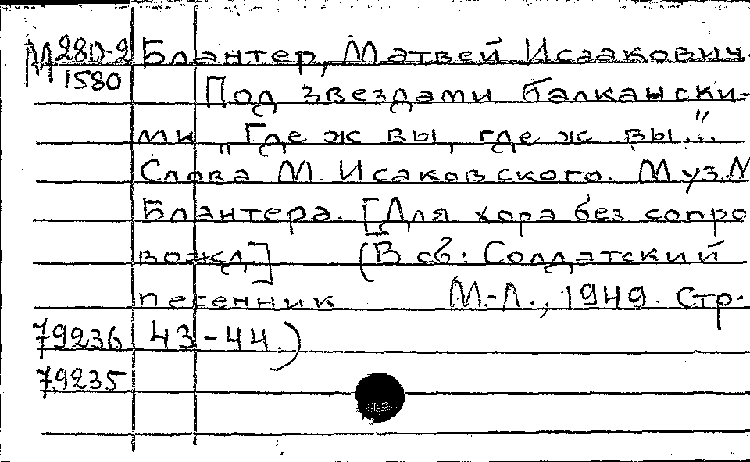 М 280-2 Блантер, Матвей Исаакович.
1580 Под звездами балкански-
ми „Где ж вы, где ж вы..."
Слова М. Исаковского. Муз. М
Блантера. [Для хора без сопро
вожд.] (В сб: Солдатский
песенник М-Л., 1949. Стр.
79236 43-44.)
79235